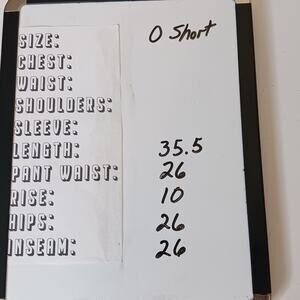 SIZE: O Short
CHEST:
WAIST:
SHOULDERS:
SLEEVE:
LENGTH: 35.5
PANT WAIST: 26
RISE: 10
HIPS: 26
INSEAM: 26